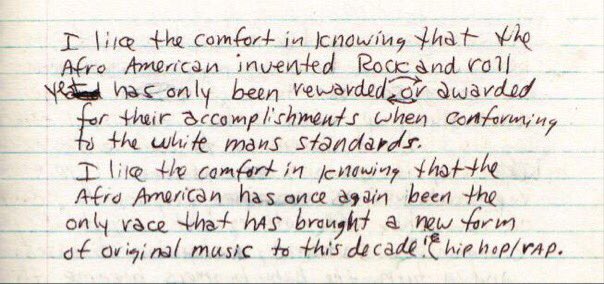 I like the comfort in knowing that the
Afro American invented Rock and roll
yet has only been rewarded or awarded
for their accomplishments when conforming
to the white mans standards.
I like the comfort in knowing that the
Afro American has once again been the
only race that has brought a new form
of original music to this decade! (hip hop/rap.